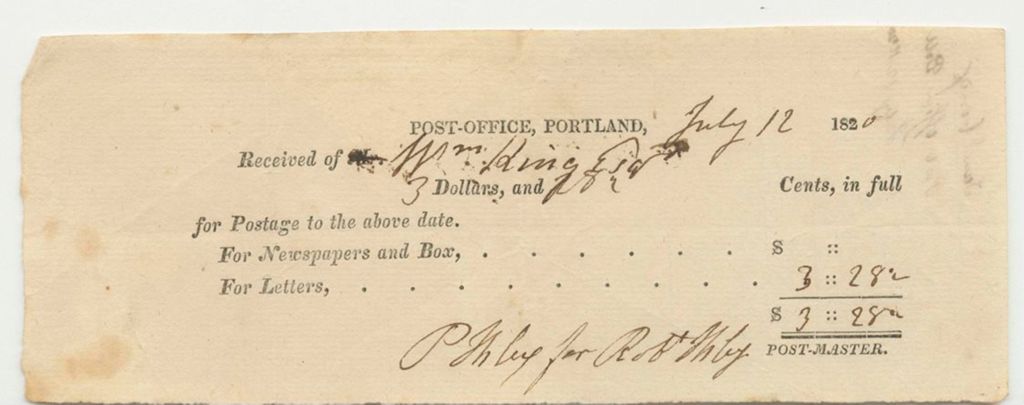 POST-OFFICE, PORTLAND, July 12 1820
Received of Wm. King Esqr
3 Dollars, and 28 Cents, in full
for Postage to the above date.
For Newspapers and Box, . . . . . . . $ ::
For Letters, . . . . . . . . . . 3 :: 28
$ 3 :: 28
P Ilsley for Robt Ilsley POST-MASTER.